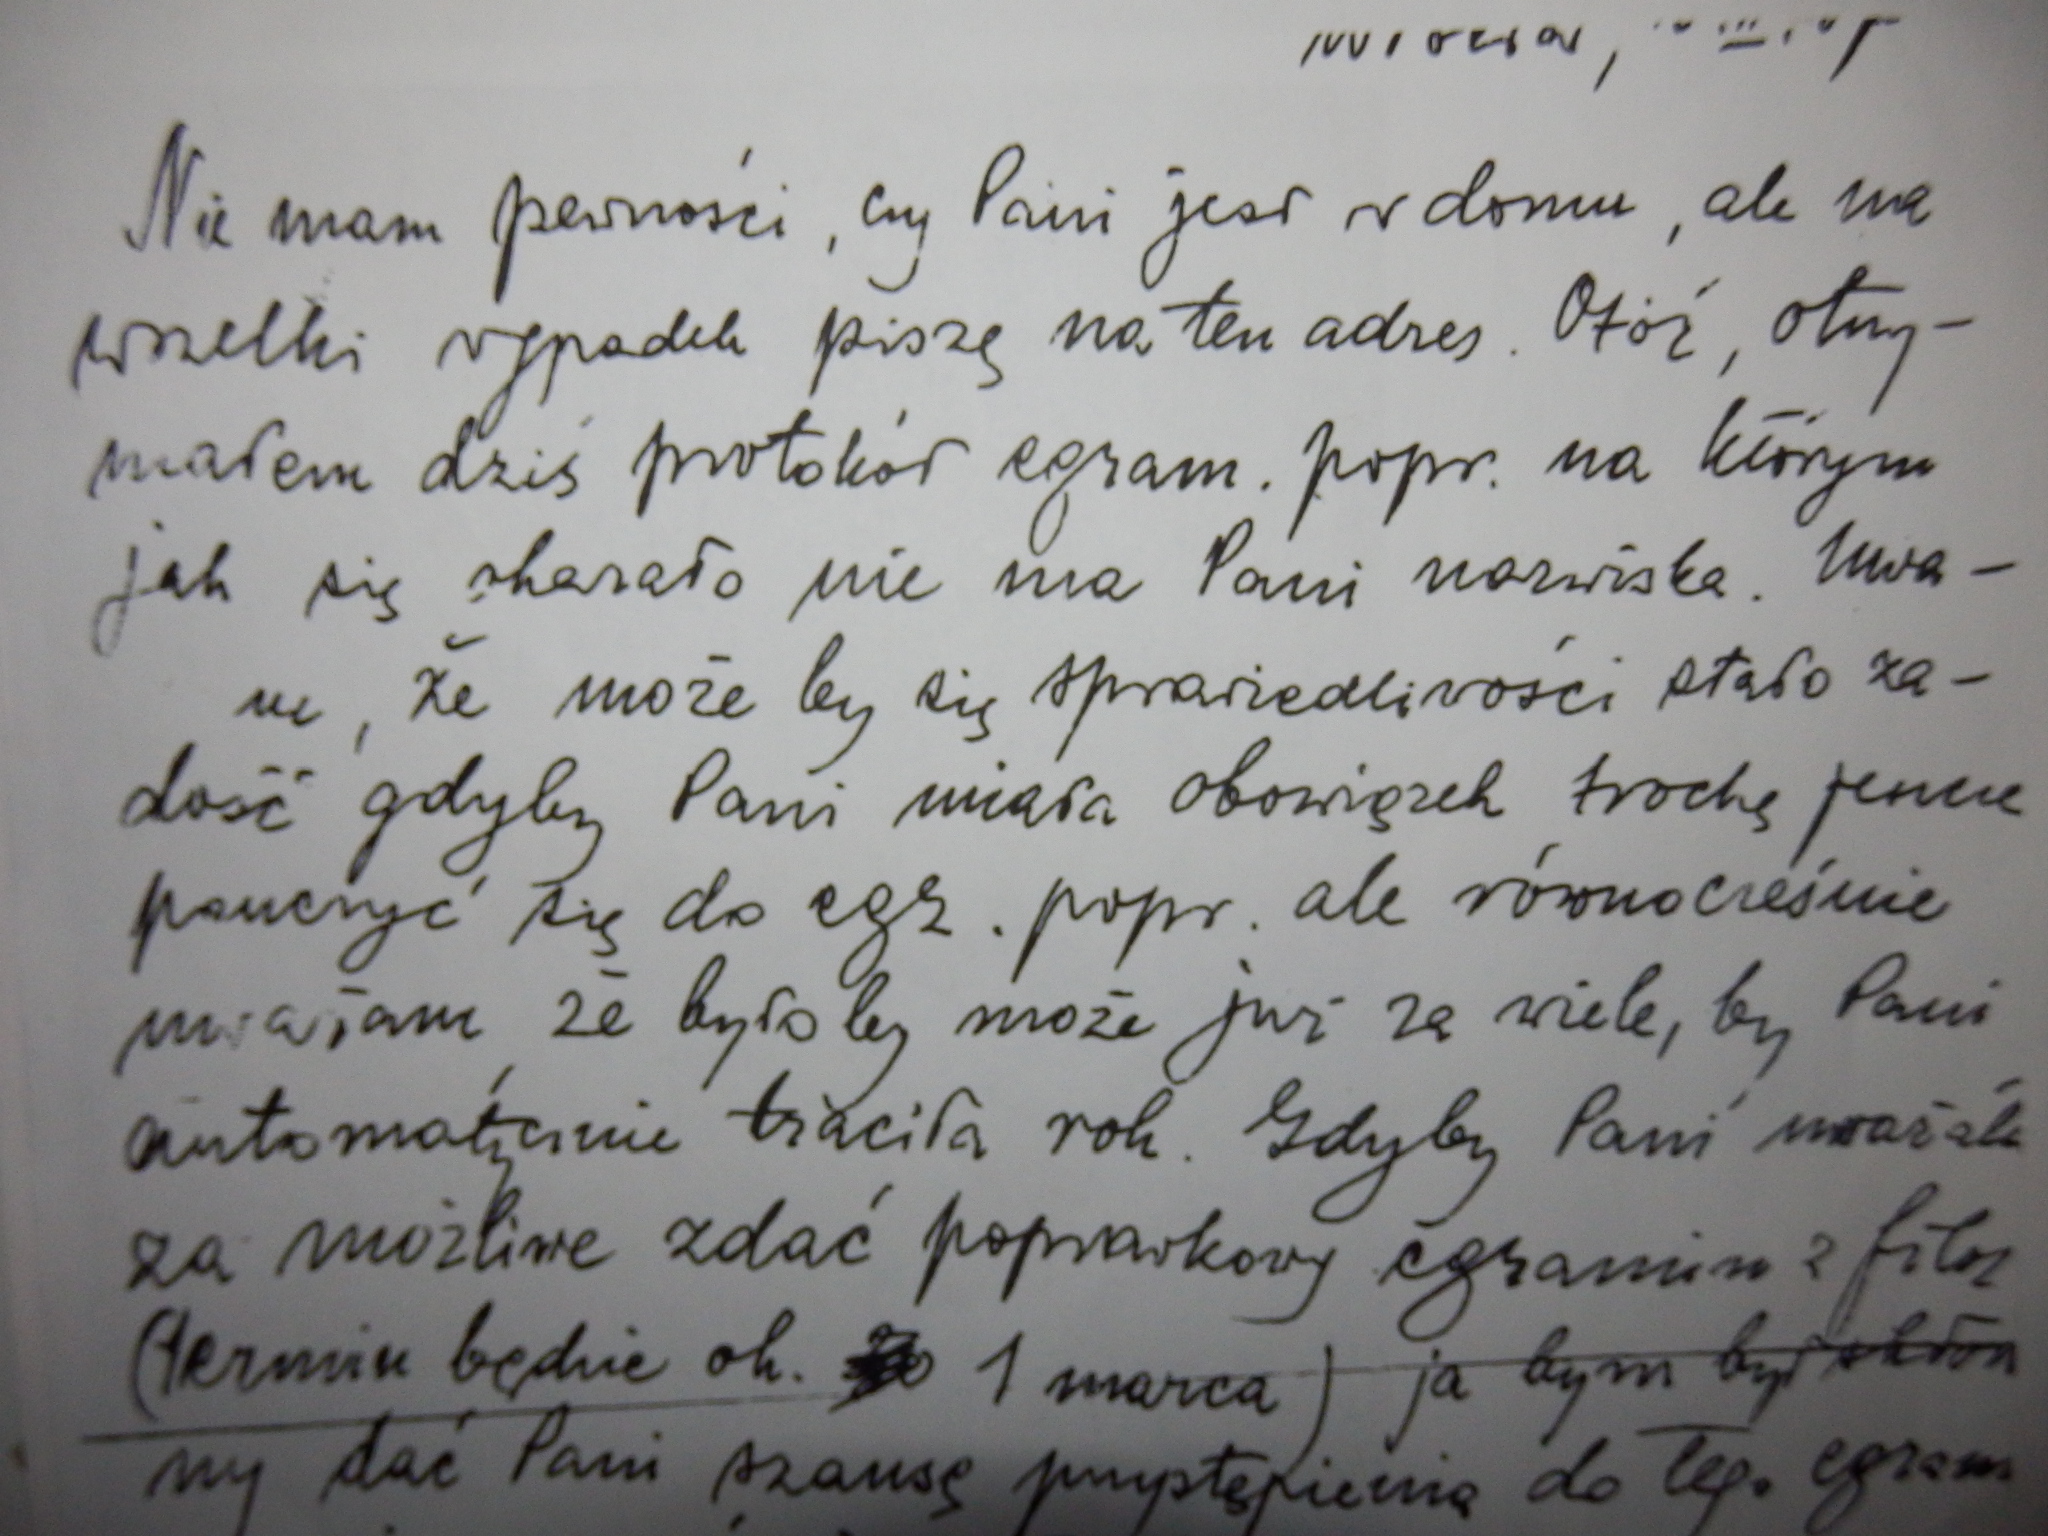 Nie mam pewności, czy Pani jest w domu, ale na
wszelki wypadek piszę na ten adres. Otóż, otrzy-
małem dziś protokół egzam. popr. na którym
jak się okazało nie ma Pani nazwiska. Uwa-
że może by się sprawiedliwości stało za-
dość gdyby Pani miała obowiązek trochę jeszcze
pouczyć się do egz. popr. ale równocześnie
uważam że byłoby może już za wiele, by Pani
automatycznie traciła rok. Gdyby Pani uważała
za możliwe zdać poprawkowy egzamin z filoz
(termin będzie ok. 1 marca) ja bym był skłon
ny dać Pani szansę przystąpienia do tego egzam